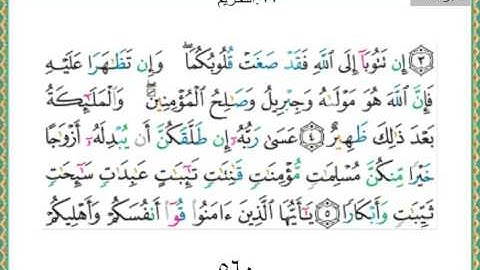 ٦٦. التحريم
٣ إِن تَتُوبَآ إِلَى ٱللَّهِ فَقَدْ صَغَتْ قُلُوبُكُمَا ۖ وَإِن تَظَـٰهَرَا عَلَيْهِ
فَإِنَّ ٱللَّهَ هُوَ مَوْلَىٰهُ وَجِبْرِيلُ وَصَـٰلِحُ ٱلْمُؤْمِنِينَ ۖ وَٱلْمَلَـٰٓئِكَةُ
بَعْدَ ذَٰلِكَ ظَهِيرٌ ٤ عَسَىٰ رَبُّهُۥٓ إِن طَلَّقَكُنَّ أَن يُبْدِلَهُۥٓ أَزْوَٰجًا
خَيْرًا مِّنكُنَّ مُسْلِمَـٰتٍ مُّؤْمِنَـٰتٍ قَـٰنِتَـٰتٍ تَـٰٓئِبَـٰتٍ عَـٰبِدَٰتٍ سَـٰٓئِحَـٰتٍ
ثَيِّبَـٰتٍ وَأَبْكَارًا ٥ يَـٰٓأَيُّهَا ٱلَّذِينَ ءَامَنُوا۟ قُوٓا۟ أَنفُسَكُمْ وَأَهْلِيكُمْ
٥٦٠